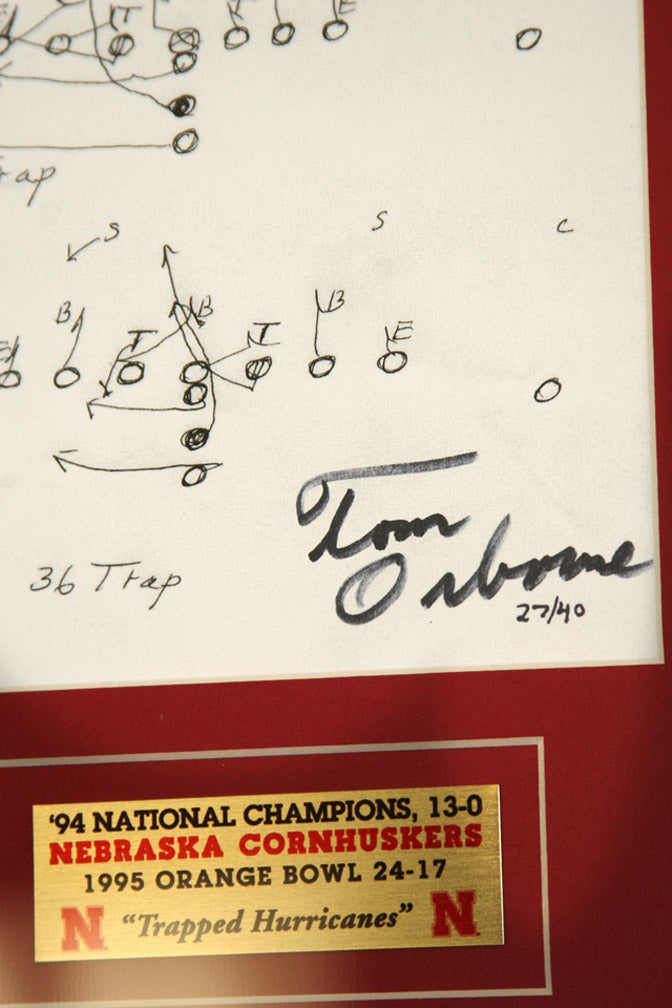 E T T E
rap
S S C
B B B
E T T E
36 Trap
Tom
Osborne
27/40
'94 NATIONAL CHAMPIONS, 13-0
NEBRASKA CORNHUSKERS
1995 ORANGE BOWL 24-17
N "Trapped Hurricanes" N